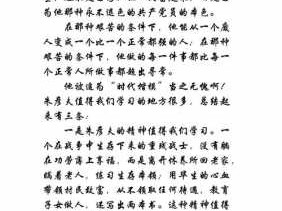 为他那种永不退色的共产党员的本色。
在那种艰苦的条件下，他能从一个废
人变成一个比一个正常都强的人；在那种
艰苦的条件下，他做的每一件事都比每一
个正常人所做事都超出寻常。
他被追为“时代楷模”当之无愧啊！
朱彦夫值得我们学习的地方很多，总结起
来有三条：
一是朱彦夫的精神值得我们学习。一
个在战争中生存下来的重残战士，没有躺
在功劳薄上享福，而是离开休养所回老家，
瞒着老人，练习生存本领；用毕生的心血
带领村民致富，从不领取任何待遇，教育
子女做人，还写出两本书。这种精神值得